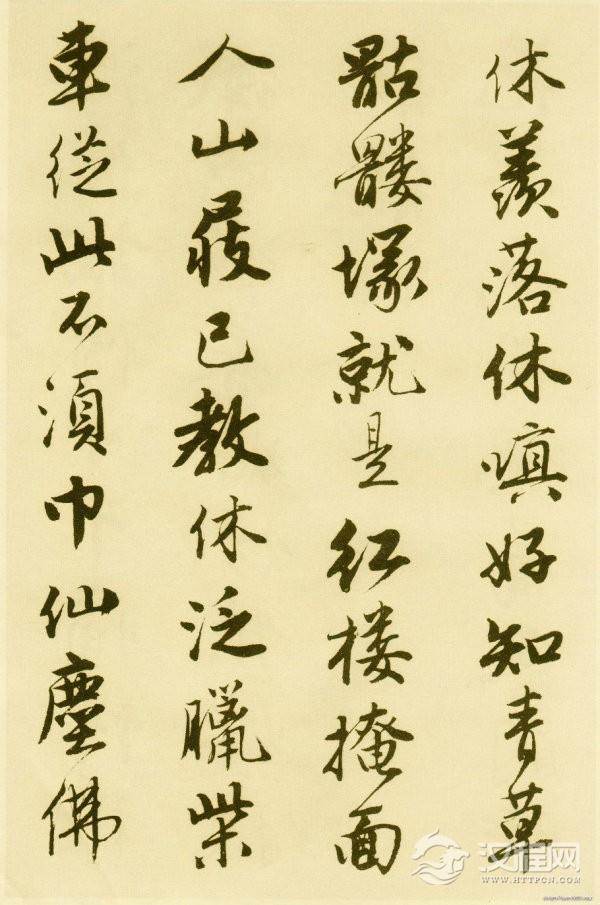 休羨落休嗔好知青草
骷髏塚就是紅樓掩面
人山屐已教休泛臘柴
車從此不須巾仙塵佛
汉程网
WWW.HTTPCN.COM